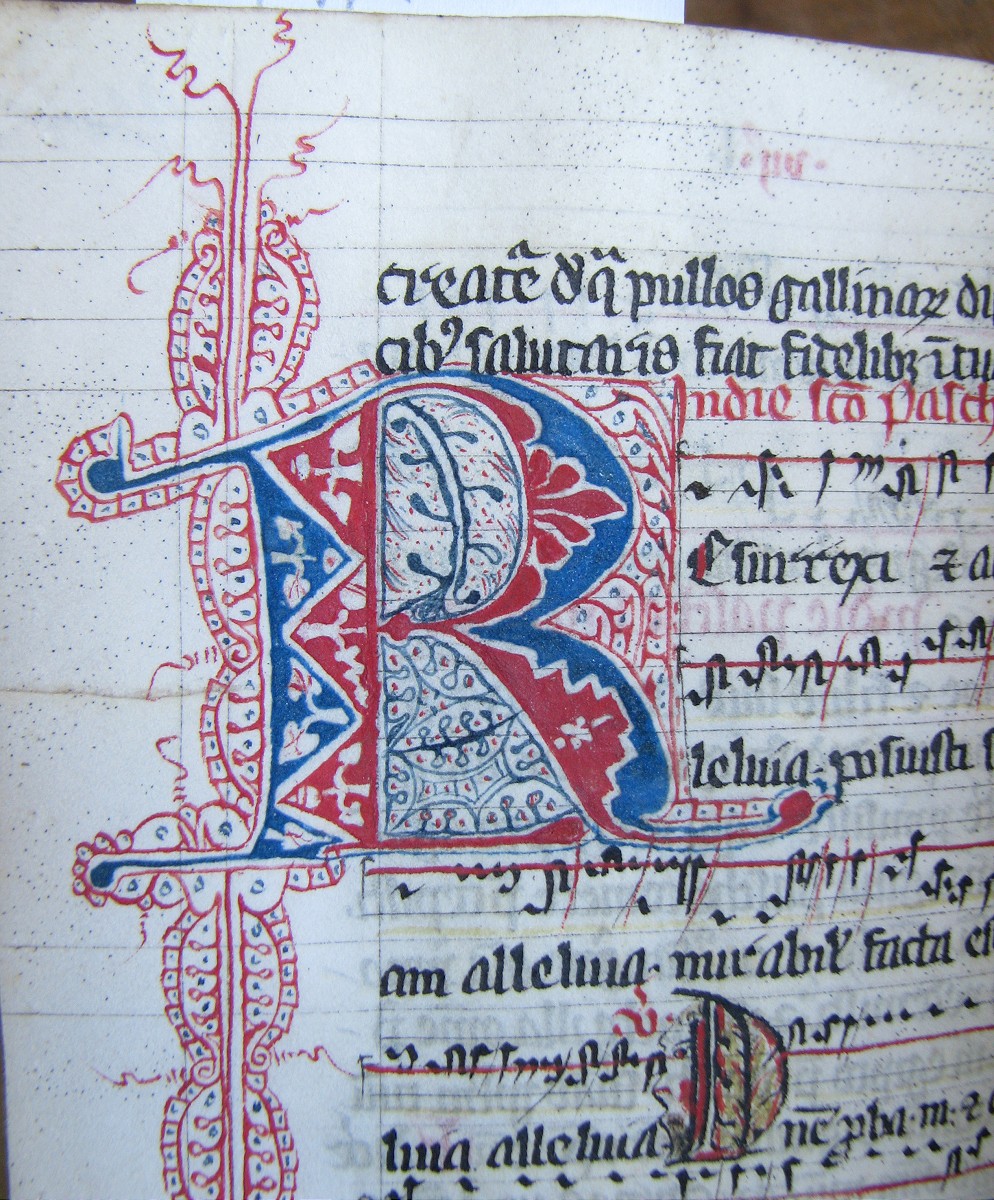 creatē d̄ qͣ pullos gallinaꝝ di
cibꝰ salutaris fiat fidelibꝫ ī tu
Indie sc̄o pasch
R
Esurrexi ⁊ a
leluia. posuisti
am alleluia. mirabil' facta es
V
D
luia alleluia nē ꝓba. m. ⁊